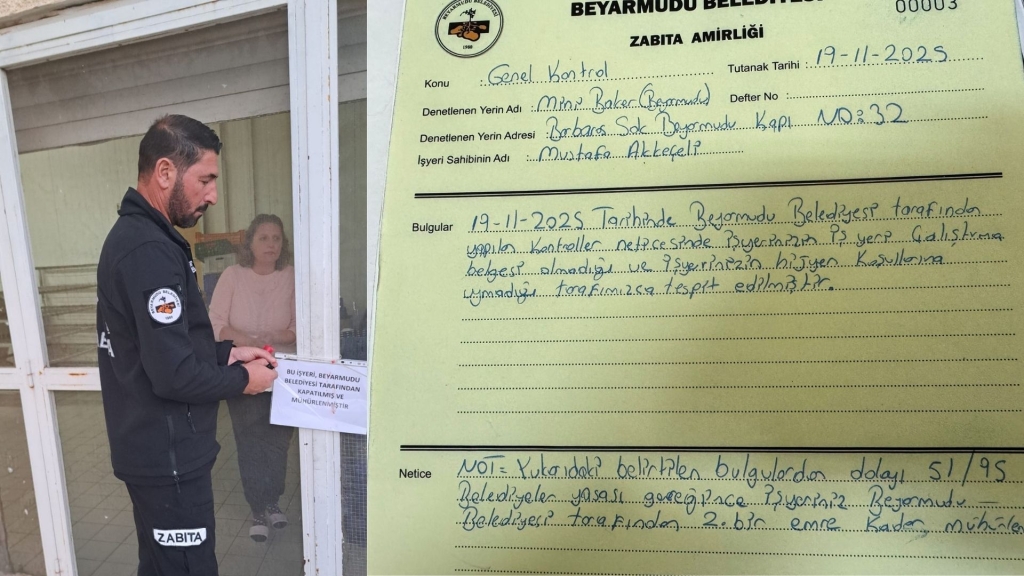 BEYARMUDU BELEDİYESİ
1980
ZABITA
BU İŞYERİ, BEYARMUDU
BELEDİYESİ TARAFINDAN
KAPATILMIŞ VE
MÜHÜRLENMİŞTİR
BEYARMUDU BELEDİYESİ
00003
ZABITA AMİRLİĞİ
Konu : Genel Kontrol
Tutanak Tarihi : 19-11-2025
Denetlenen Yerin Adı : Mini Baker (Beyarmudu)
Defter No :
Denetlenen Yerin Adresi : Barbaros Sok Beyarmudu Kapı NO:32
İşyeri Sahibinin Adı : Mustafa Akkeçeli
Bulgular 19-11-2025 Tarihinde Beyarmudu Belediyesi tarafından
yapılan kontroller neticesinde işyerinizin iş yeri Çalıştırma
belgesi olmadığı ve işyerinizin hijyen koşullarına
uymadığı tarafımızca tespit edilmiştir.
Netice NOT= Yukarıdaki belirtilen bulgulardan dolayı 51/95
Belediyeler yasası gereğince işyeriniz Beyarmudu
Belediyesi tarafından 2. bir emre kadar mühürlen